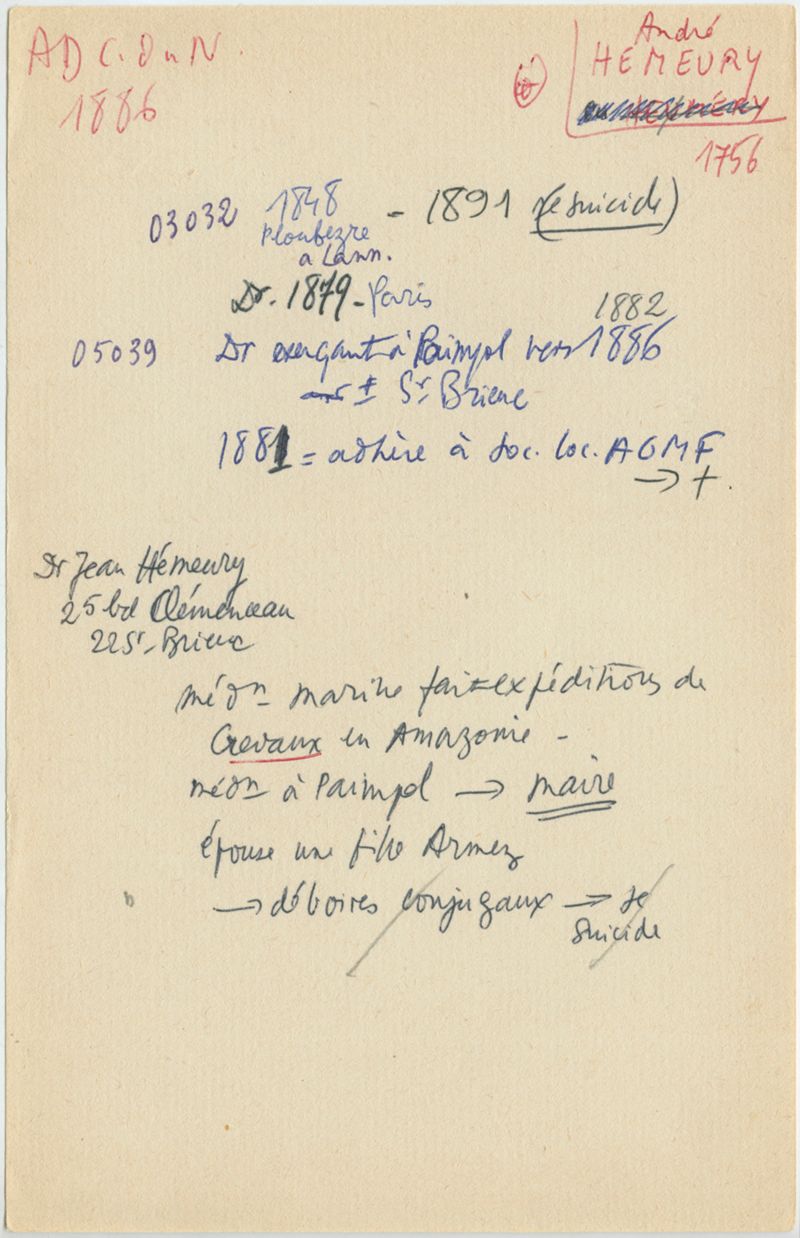 AD C. du N.
1886
André
HEMEURY
1756
03032 1848 - 1891 (se suicide)
Ploubezre
a Lann.
Dr. 1879 - Paris
1882
05039 Dr exerçant à Paimpol vers 1886
± St Brieuc
1881 = adhère à soc. loc. AGMF
→ +.
Dr Jean Hémeury
25 bd Clémenceau
22 St-Brieuc
méd.n marine fait expéditions de
Crevaux en Amazonie -
méd.n à Paimpol → maire
épouse une fille Armez
→ déboires conjugaux → se
suicide